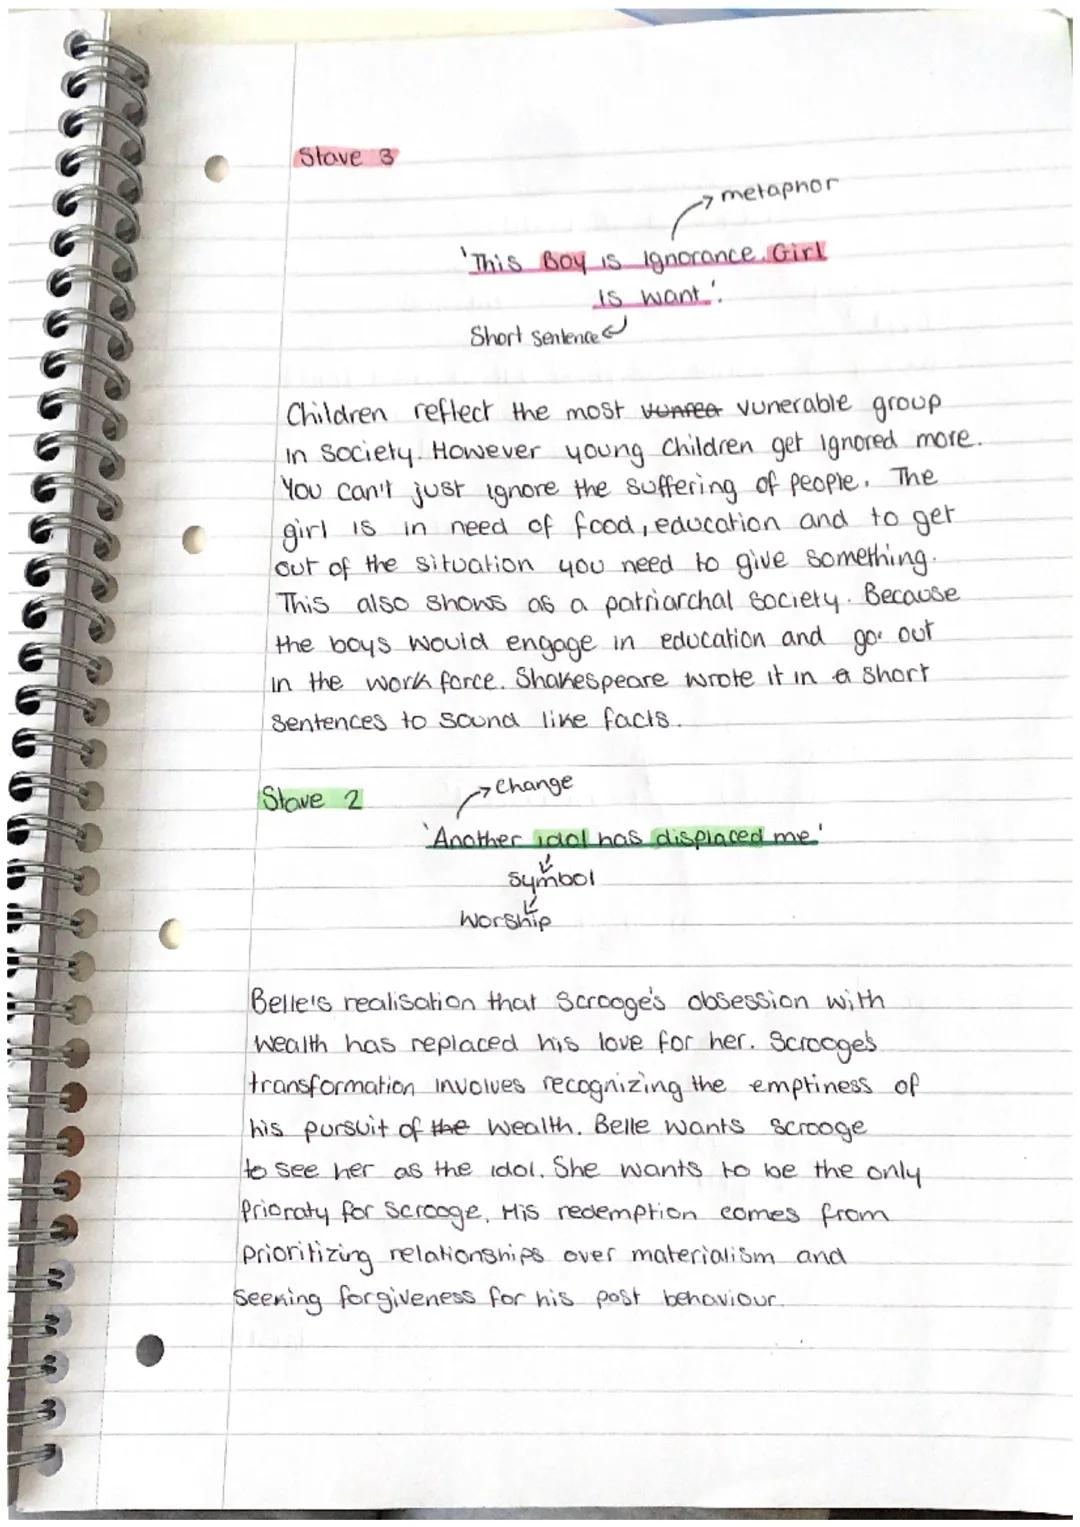 Stave 3
→ metaphor
'This Boy is Ignorance. Girl
is want.'
Short sentence
Children reflect the most vunerable group
in society. However young children get ignored more.
You can't just ignore the suffering of people. The
girl is in need of food, education and to get
out of the situation you need to give something.
This also shows as a patriarchal society. Because
the boys would engage in education and go out
in the work force. Shakespeare wrote it in a short
sentences to sound like facts.
Stave 2
→ change
'Another idol has displaced me.'
symbol
worship
Belle's realisation that Scrooge's obsession with
wealth has replaced his love for her. Scrooge's
transformation involves recognizing the emptiness of
his pursuit of the wealth. Belle wants scrooge
to see her as the idol. She wants to be the only
prioraty for scrooge. His redemption comes from
prioritizing relationships over materialism and
seeking forgiveness for his past behaviour.